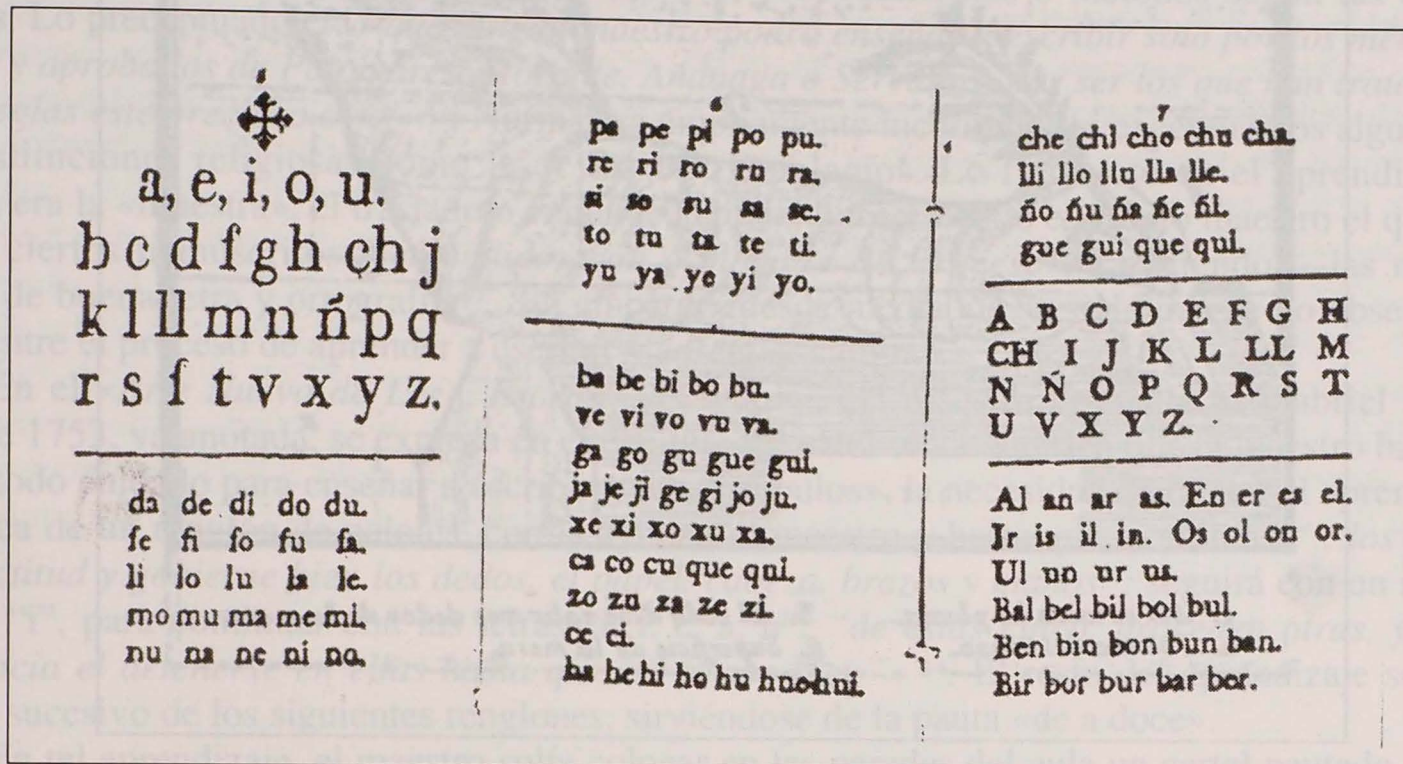 a, e, i, o, u.
b c d f g h ch j
k l ll m n ñ p q
r s ſ t v x y z.
da de di do du.
fe fi fo fu fa.
li lo lu la le.
mo mu ma me mi.
nu na ne ni no.
pa pe pi po pu.
re ri ro ru ra.
si so su sa se.
to tu ta te ti.
yu ya ye yi yo.
ba be bi bo bu.
ve vi vo vu va.
ga go gu gue gui.
ja je ji ge gi jo ju.
xe xi xo xu xa.
ca co cu que qui.
zo zu za ze zi.
ce ci.
ha he hi ho hu hue hui.
che chi cho chu cha.
lli llo llu lla lle.
ño ñu ña ñe ñi.
gue gui que qui.
A B C D E F G H
CH I J K L LL M
N Ñ O P Q R S T
U V X Y Z.
Al an ar as. En er es el.
Ir is il in. Os ol on or.
Ul un ur us.
Bal bel bil bol bul.
Ben bin bon bun ban.
Bir bor bur bar ber.